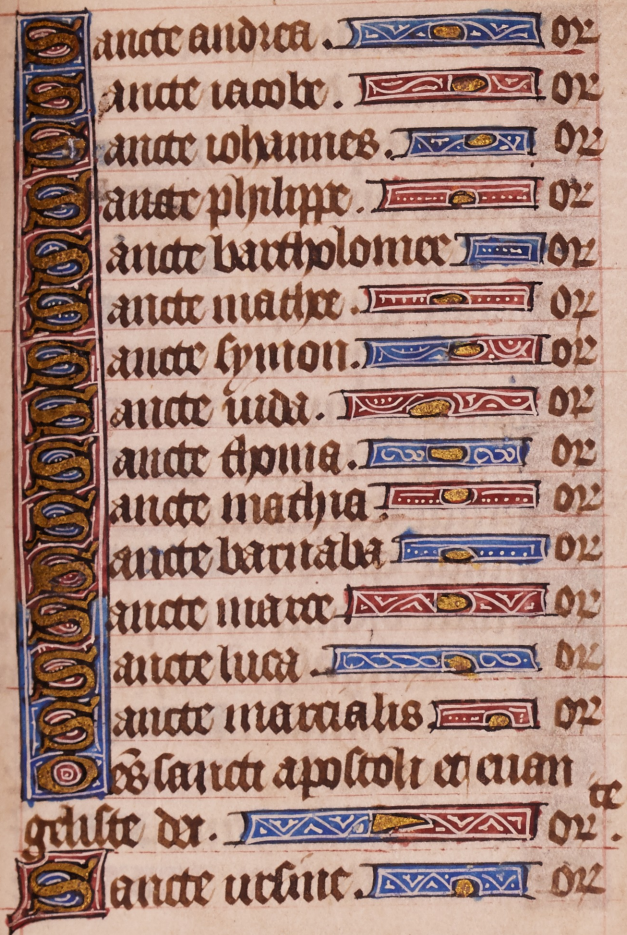 Sancte andrea. or
Sancte iacobe. or
Sancte iohannes. or
Sancte philippe. or
Sancte bartholomee or
Sancte mathee. or
Sancte symon. or
Sancte iuda. or
Sancte thoma. or
Sancte mathia. or
Sancte barnaba or
Sancte marce or
Sancte luca or
Sancte marcialis or
Oēs sancti apostoli et euan
geliste dei. or te.
Sancte ursine. or